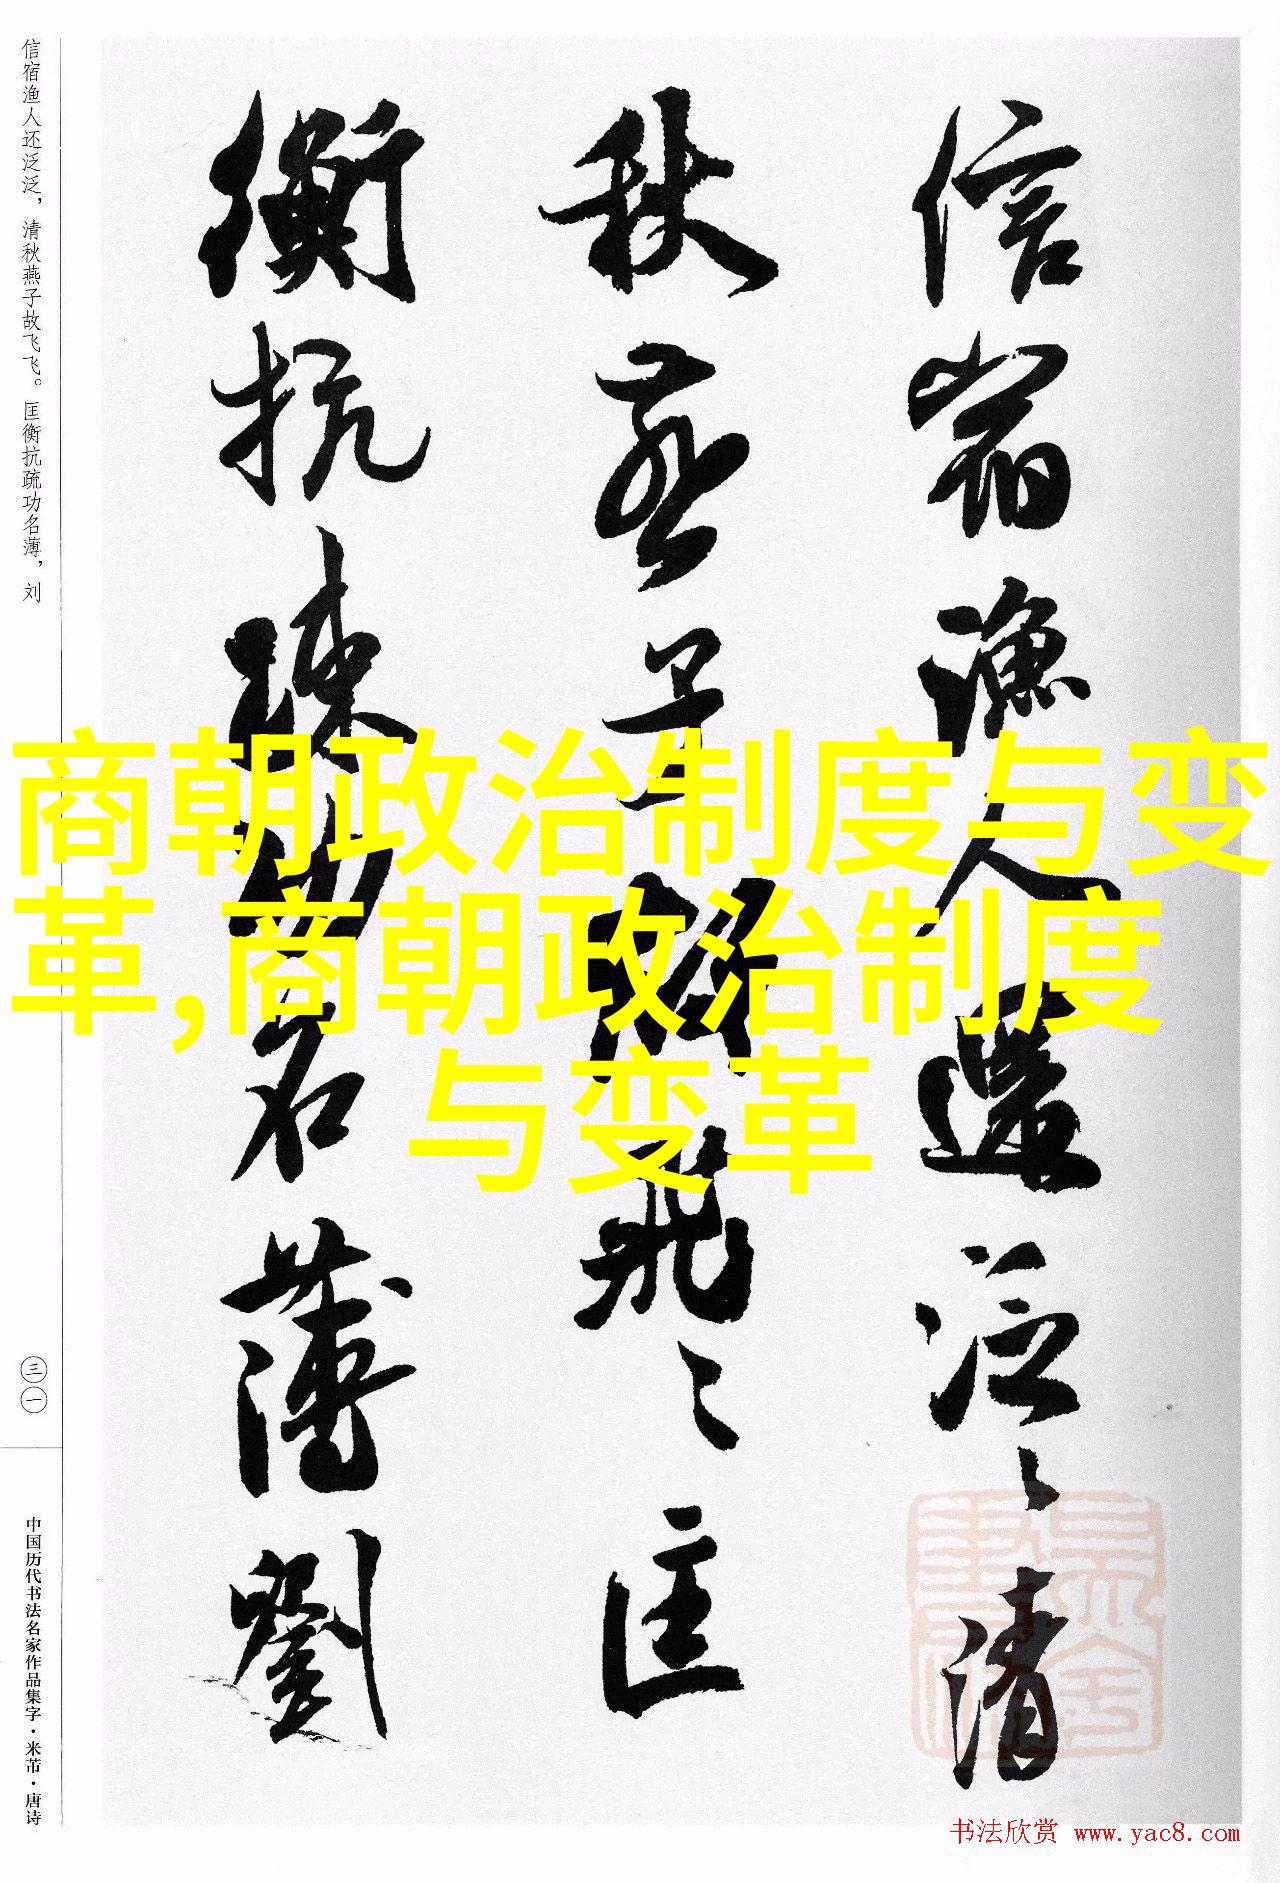 信宿渔人还泛泛，清秋燕子故飞飞。匡衡抗疏功名薄，刘
信宿漁人還泛〻清
秋燕子故飛〻匡
衡抗疏功名薄劉
商朝政治制度与变
革,商朝政治制度
与变革
三一
中国历代书法名家作品集字·米芾·唐诗
书法欣赏 www.yac8.com